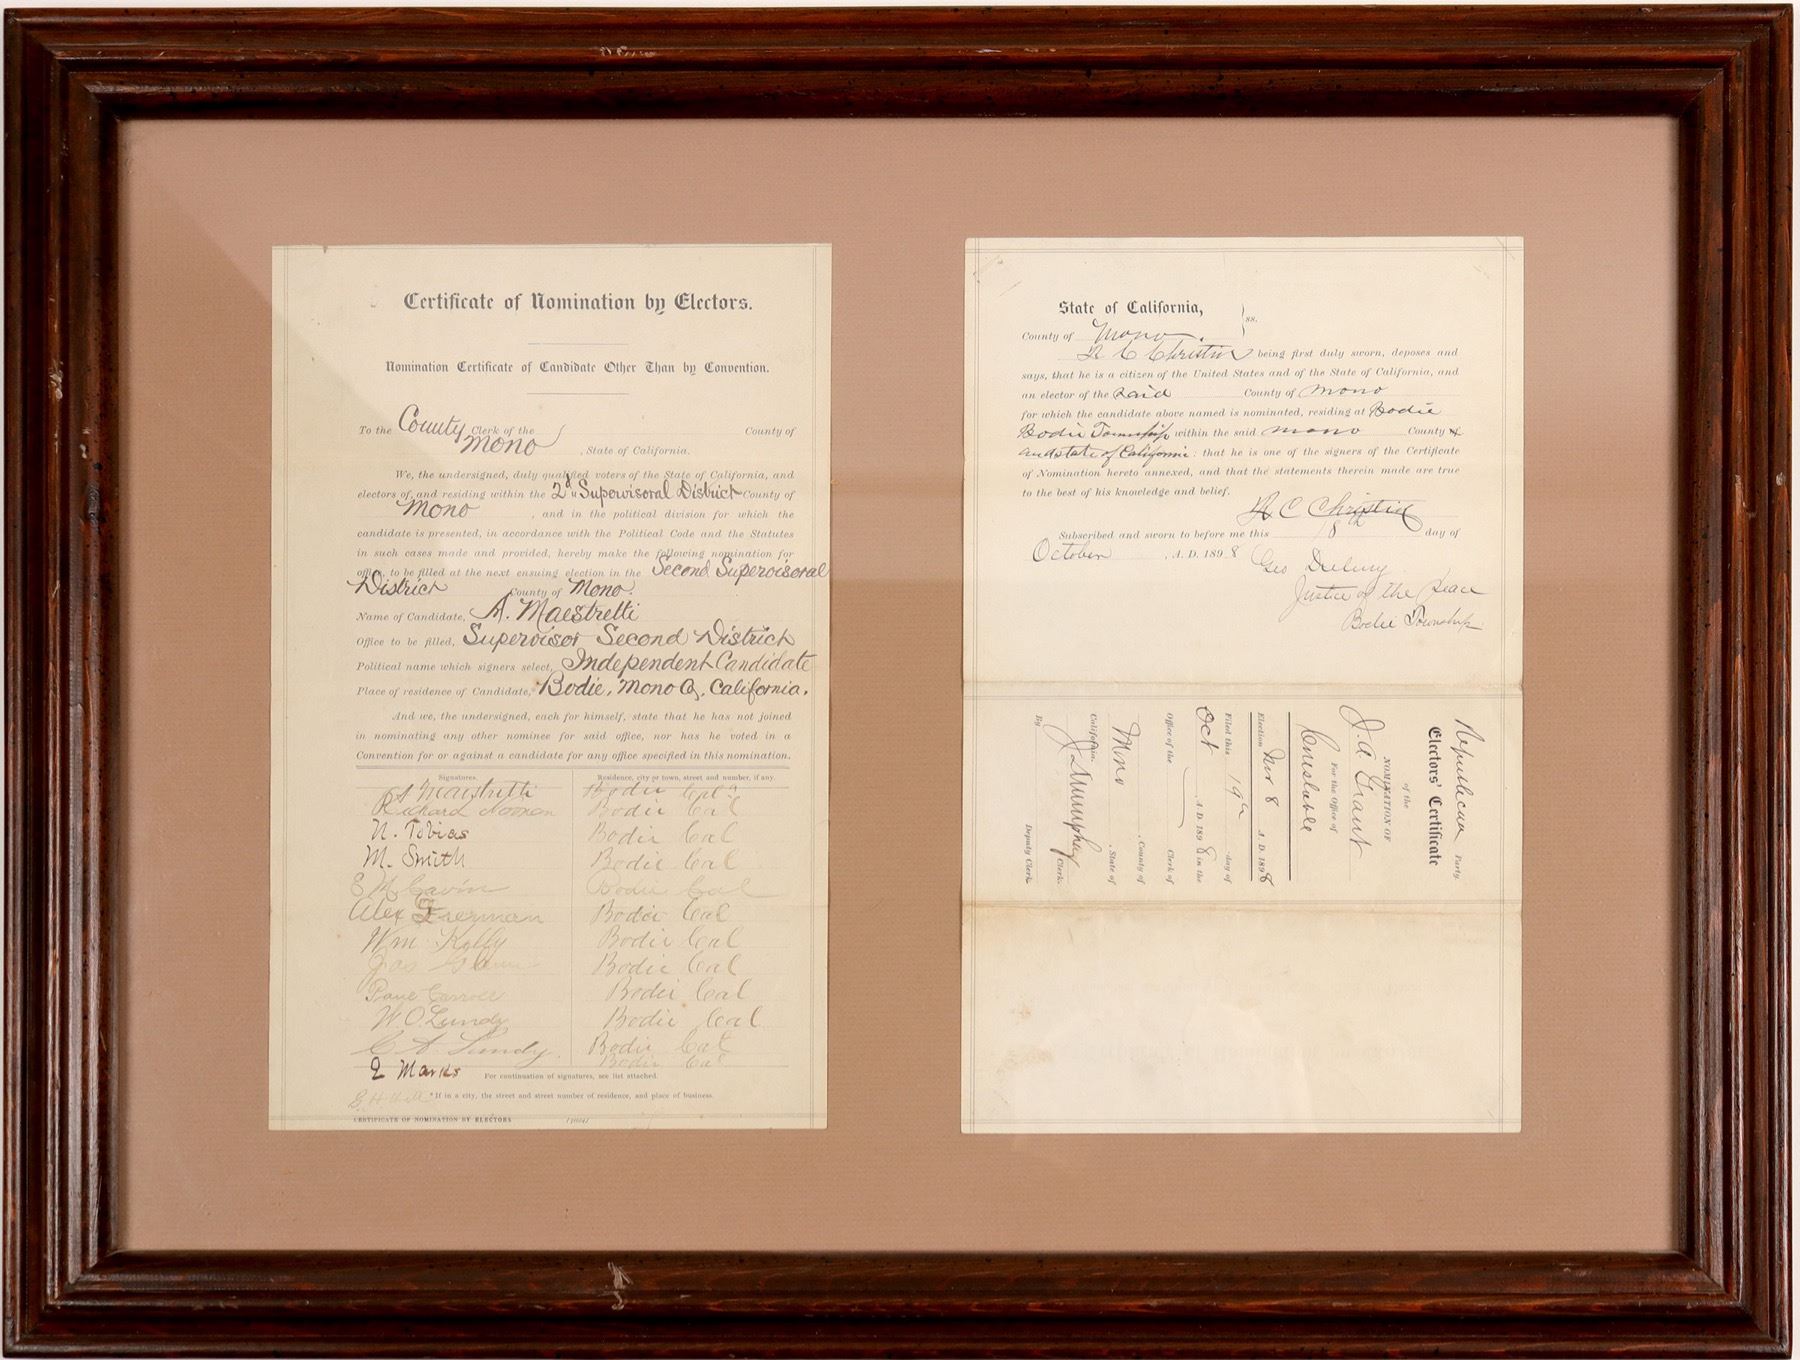 Certificate of Nomination by Electors.
Nomination Certificate of Candidate Other Than by Convention.
To the County Clerk of the County of
Mono , State of California.
We, the undersigned, duly qualified voters of the State of California, and
electors of, and residing within the 2d Supervisoral District County of
Mono , and in the political division for which the
candidate is presented, in accordance with the Political Code and the Statutes
in such cases made and provided, hereby make the following nomination for
office to be filled at the next ensuing election in the Second Supervisoral
District County of Mono.
Name of Candidate, A. Maestretti
Office to be filled, Supervisor Second District
Political name which signers select, Independent Candidate
Place of residence of Candidate, Bodie, Mono Co, California.
And we, the undersigned, each for himself, state that he has not joined
in nominating any other nominee for said office, nor has he voted in a
Convention for or against a candidate for any office specified in this nomination.
Signatures. Residence, city or town, street and number, if any.
A Maestretti Bodie Cal
Richard Noonan Bodie Cal
N. Tobias Bodie Cal
M. Smith Bodie Cal
E McGavin Bodie Cal
Alex Bodie Cal
Wm Kelly Bodie Cal
Jas Bodie Cal
Carroll Bodie Cal
W. O. Lundy Bodie Cal
C A Lundy. Bodie Cal
Marks Bodie Cal
For continuation of signatures, see list attached.
*If in a city, the street and street number of residence, and place of business.
CERTIFICATE OF NOMINATION BY ELECTORS
State of California,
County of Mono. } ss.
C Christin being first duly sworn, deposes and
says, that he is a citizen of the United States and of the State of California, and
an elector of the said County of Mono
for which the candidate above named is nominated, residing at Bodie
Bodie Township within the said Mono County of
and state of California : that he is one of the signers of the Certificate
of Nomination hereto annexed, and that the statements therein made are true
to the best of his knowledge and belief.
C Christin
Subscribed and sworn to before me this 18th day of
October , A. D. 1898 Geo
Justice of the Peace
Bodie Township
Republican Party.
Electors' Certificate
of the
NOMINATION OF
J. A. Grant
For the Office of
Constable
Election Nov 8 A. D. 1898
Filed this 19th day of
Oct A. D. 1898 in the
Office of the Clerk of
Mono , County of
, State of
California.
Clerk.
By Deputy Clerk.